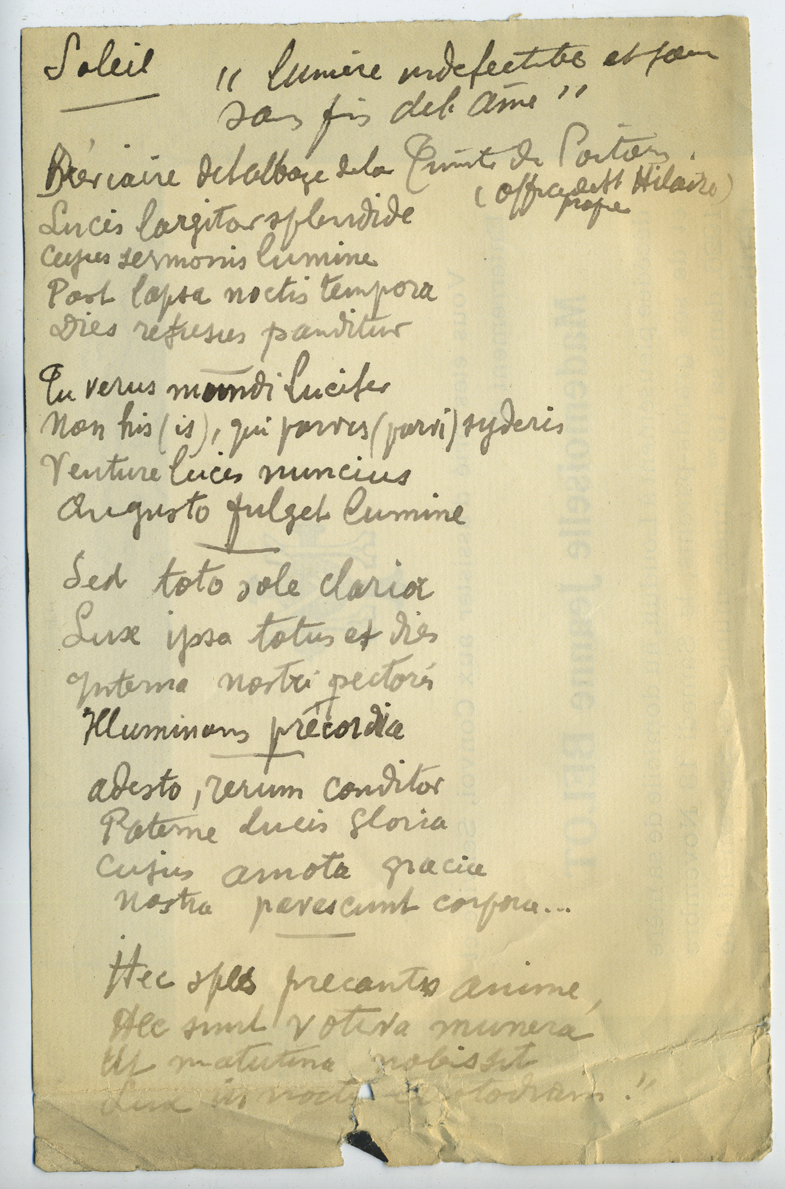 Soleil
" lumière indefectible et jour
sans fin de l'âme "
Bréviaire de l'abbaye de la Trinité de Poitiers.
(office de St Hilaire)
propre
Lucis largitor splendide
Cujus sermonis lumine
Post lapsa noctis tempora
Dies refusus panditur
Tu verus mundi Lucifer
Non his (is), qui parvis (parvi) syderis
Venture lucis nuncius
Augusto fulget lumine
Sed toto sole clarior
Lux ipsa totus et dies
Interna nostri pectoris
Illuminans précordia
adesto, rerum conditor
Paterne lucis gloria
Cujus amota gracia
Nostra pavescunt corpora...
Hec spes precantis anime,
Hec sunt votiva munera
Ut matutina nobis sit
Lux in noctis custodiam."
Mademoiselle Jeanne BILLOT